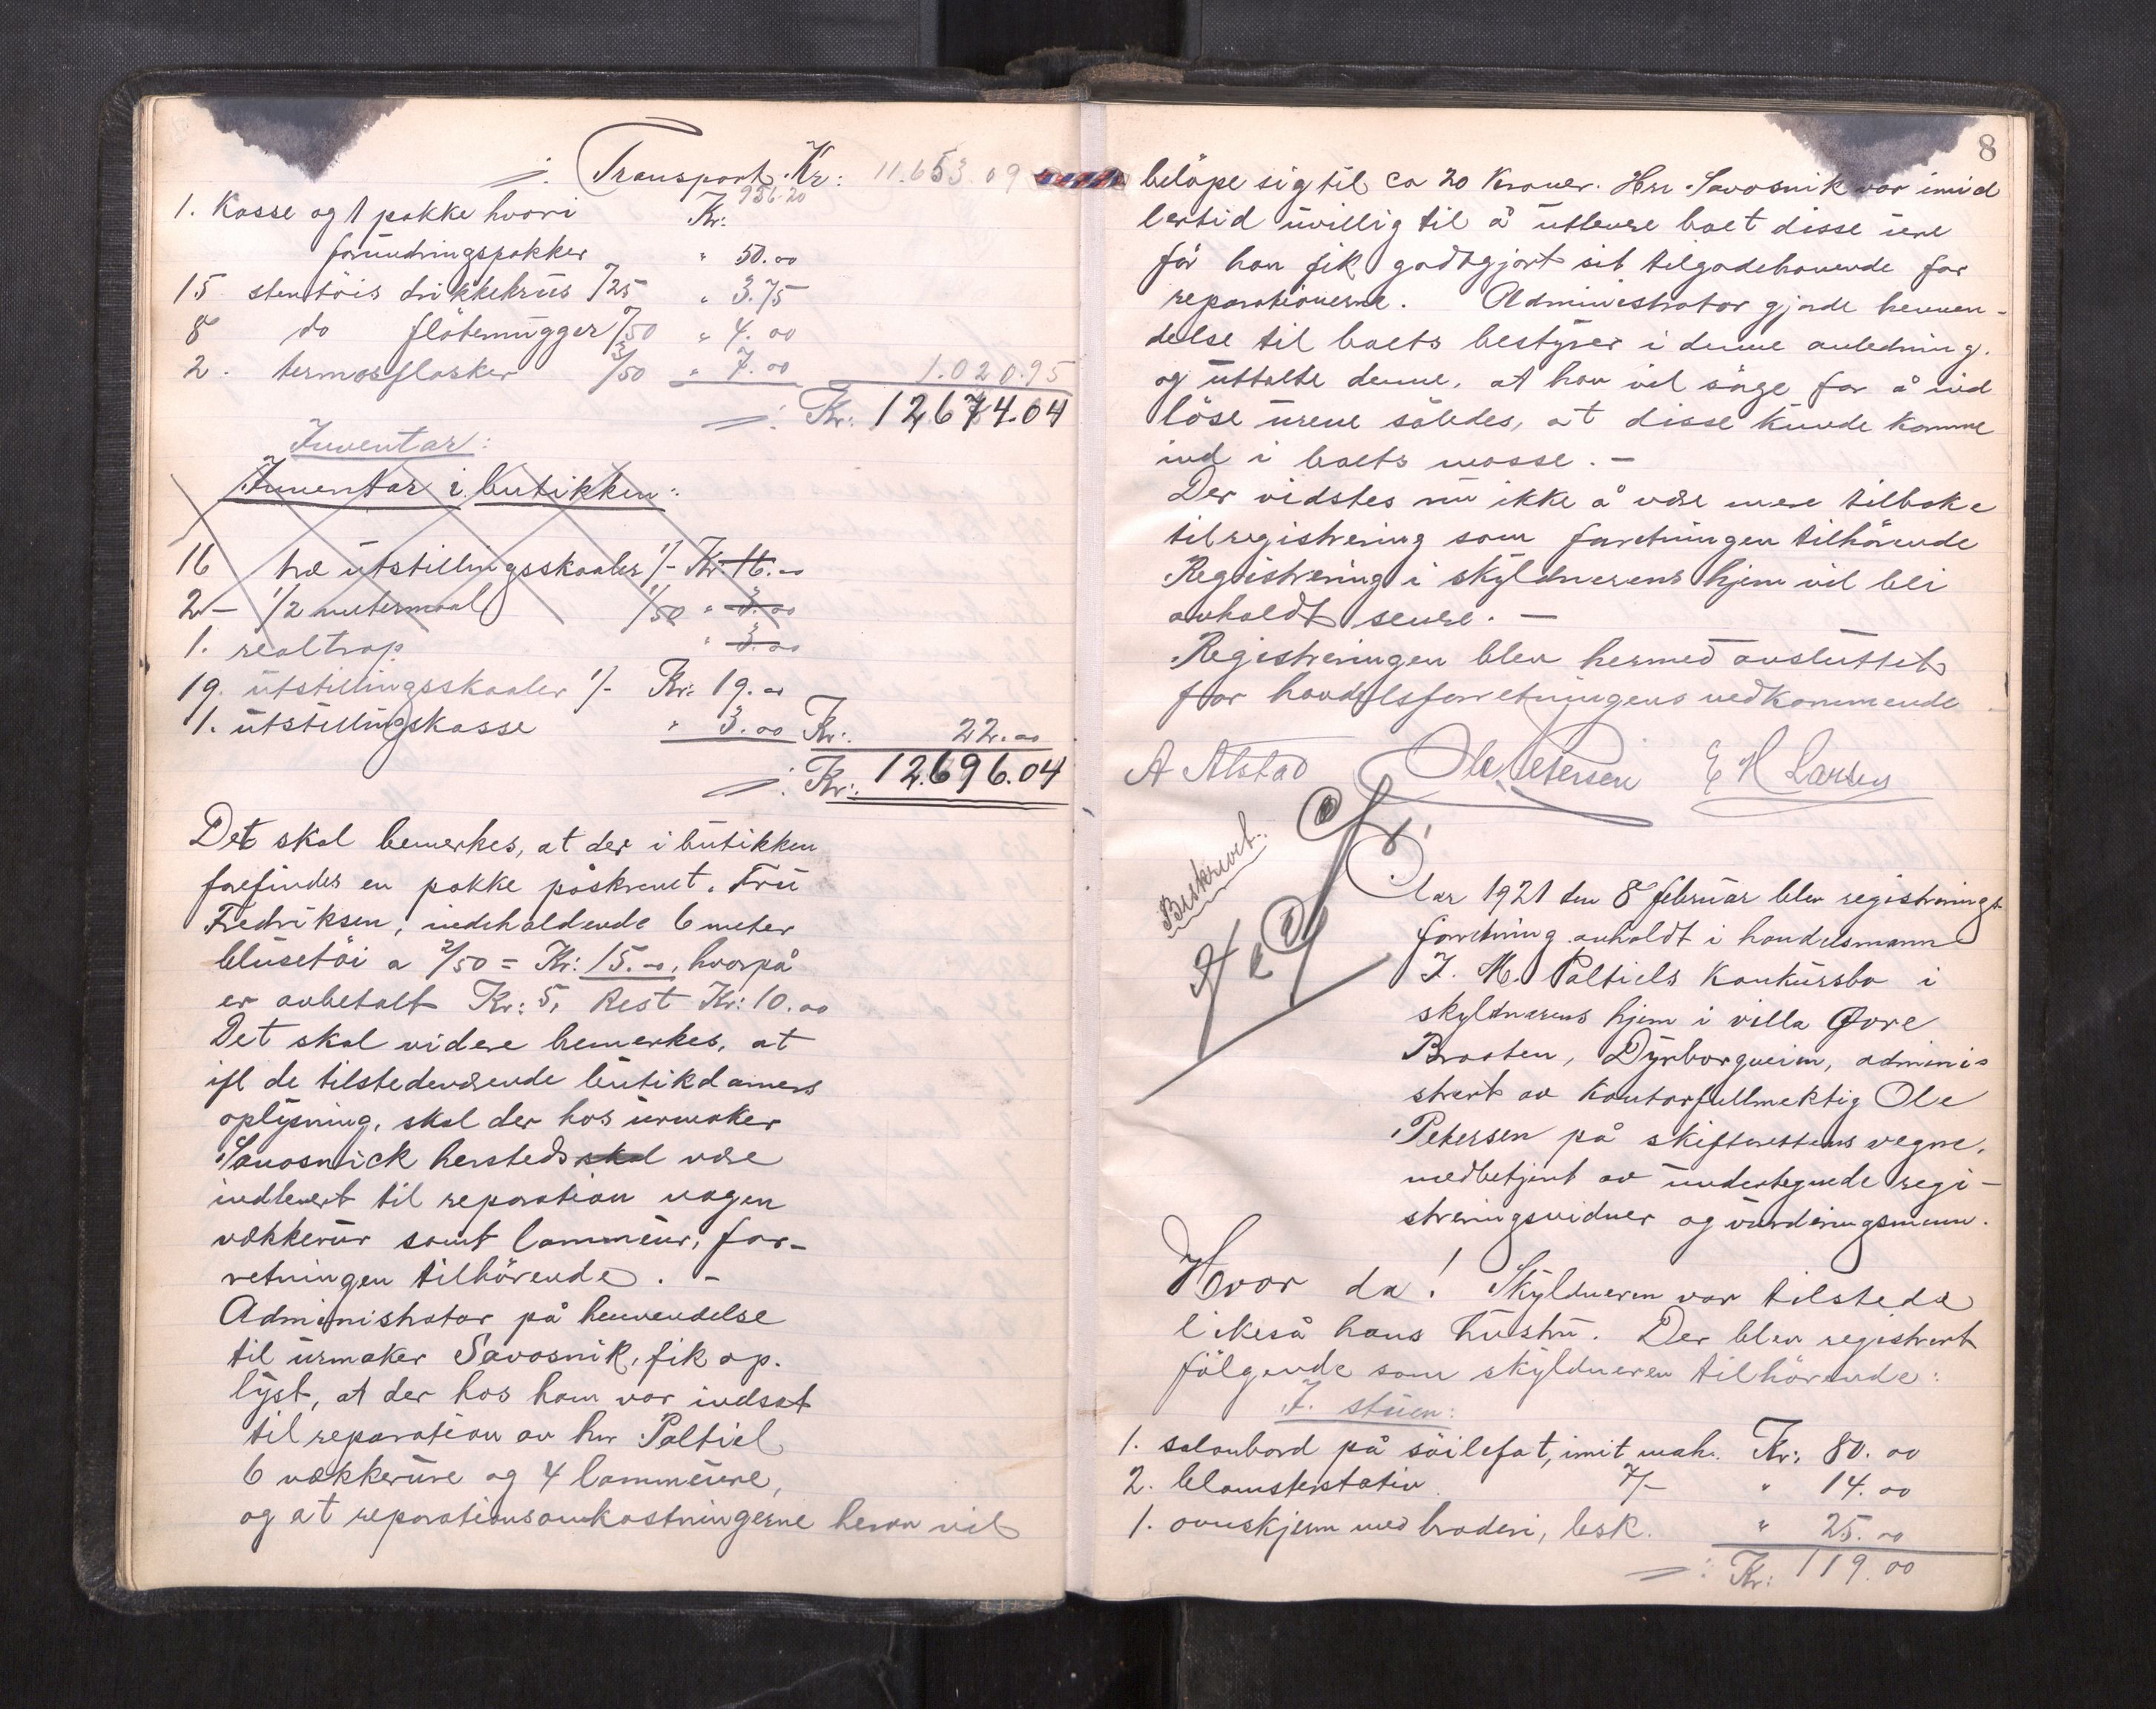 Transport Kr: 11.653.09
1. Kasse og 1 pakke hvori Kr: 956.20
forundringspakker " 50.00
15 stentöis drikkekrus /25 " 3.75
8 do flötemugger /50 " 4.00
2. termosflasker 3/50 " 7.00 1.020.95
Kr: 12.674.04
Inventar:
Inventar i butikken:
16 træ utstillingsskaaler 1/- Kr. 16.00
2 - 1/2 metermaal 1/50 " 3.00
1. realtrap " 3.00
19. utstillingsskaaler 1/- Kr: 19.00
1. utstillingskasse " 3.00 Kr: 22.00
Kr: 12.696.04
Det skal bemerkes, at der i butikken
forefindes en pakke påskrevet. Fru
Fredriksen, indeholdende 6 meter
blusetöi a 2/50 = Kr: 15.00, hvorpå
er avbetalt Kr: 5, Rest Kr: 10.00
Det skal videre bemerkes, at
ifl de tilstedeværende butikdamers
oplysning, skal der hos urmaker
Savosnick hersteds skal være
indlevert til reparation nogen
vækkerur samt lommeur, for-
retningen tilhörende. -
Administrator på henvendelse
til urmaker Savosnik, fik op-
lyst, at der hos ham var indsat
til reparation av hr Paltiel
6 vækkerure og 4 lommeure,
og at reparationsomkostningerne herav vil
8
belöpe sig til ca 20 Kroner. Hr. Savosnik var imid
lertid uvillig til å utlevere boet disse ure
för han fik godtgjort sit tilgodehavende for
reparationerne. Administrator gjorde henven-
delse til boets bestyrer i denne anledning.
og uttalte denne, at han vil sörge for å ind
löse urene således, at disse kunde komme
ind i boets masse. -
Der vidstes nu ikke å være mere tilbake
til registrering som forretningen tilhörende
Registrering i skyldnerens hjem vil bli
avholdt senere. -
Registreringen blev hermed avsluttet
for handelsforretningens vedkommende
A Alstad Ole Petersen E H Larsen
Beskrevet.
Aar 1921 den 8 februar blev registrerings-
forretning avholdt i handelsmann
I. M. Paltiels Konkursbo i
skyldnerens hjem i villa Övre
Braaten, Dyrborgveien, adminis
strert av kontorfullmektig Ole
Petersen på skifterettens vegne,
medbetjent av undertegnede regi-
streringsvidner og vurderingsmenn.
Hvor da! Skyldneren var tilstede
likeså hans hustru. Der blev registrert
fölgende som skyldneren tilhörende:
I. stuen:
1. salonbord på söilefot, imit mah. Kr: 80.00
2. blomsterstativ 7/- " 14.00
1. ovnskjerm med broderi, besk. " 25.00
Kr: 119.00